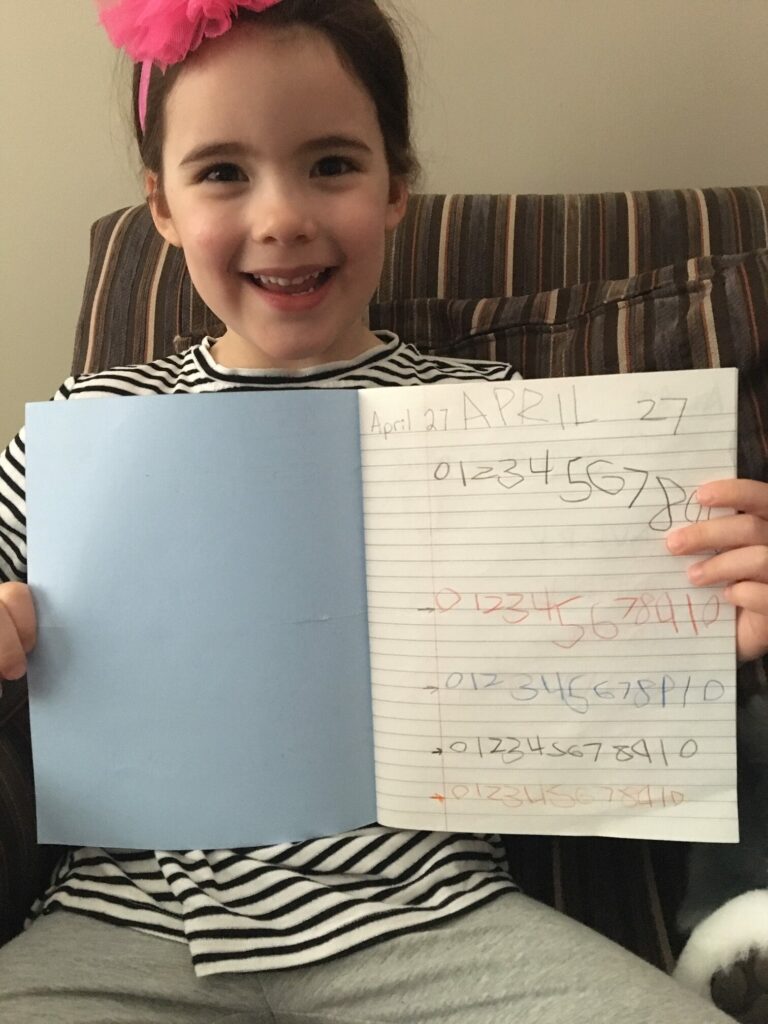 April 27 APRIL 27
012345678
012345678910
012345678910
012345678910
012345678910